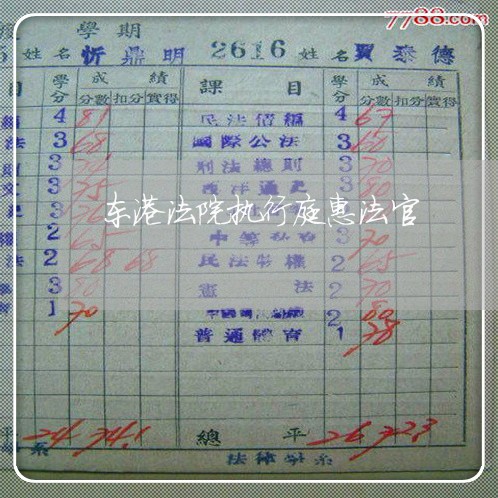 7788.com
學期
姓名 忻鼎明 2616 姓名 賈泰德
目 學分 成績 課目 學分 成績
分數 扣分 實得 分數 扣分 實得
4 81 民法債編 4 67
法 3 68 國際公法 3 60
3 刑法總則 3 70
3 75 西洋通史 3 80
东港法院执行庭惠法官
3
2 65 3 70
法 2 68 68 民法物權 2 65
3 80 憲法 2 70
1 70 2 80
普通體育 1 78
平 24 74.1 總平 26 72.3
系 法律學系